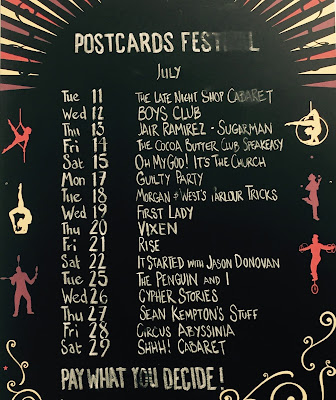 POSTCARDS FESTIVAL
JULY
Tue 11 THE LATE NIGHT SHOP CABARET
Wed 12 BOYS CLUB
Thu 13 JAIR RAMIREZ - SUGARMAN
Fri 14 THE COCOA BUTTER CLUB SPEAKEASY
Sat 15 OH MY GOD! IT'S THE CHURCH
Mon 17 GUILTY PARTY
Tue 18 MORGAN & WEST'S PARLOUR TRICKS
Wed 19 FIRST LADY
Thu 20 VIXEN
Fri 21 RISE
Sat 22 IT STARTED WITH JASON DONOVAN
Tue 25 THE PENGUIN AND I
Wed 26 CYPHER STORIES
Thu 27 SEAN KEMPTON'S STUFF
Fri 28 CIRCUS ABYSSINIA
Sat 29 SHHH! CABARET
PAY WHAT YOU DECIDE!